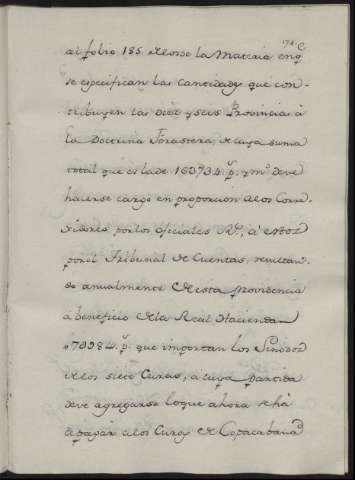 174.
al folio 185. de los de la Materia en q.
se especifican las Cantidades que con-
tribuyen las diez y seis Provincias à
la Doctrina Forastera, de cuya suma
total que es la de 160734. p.s y m.o deve
hacerse cargo en proporcion a los Corre-
xidores por los oficiales R.s, à
por el Tribunal de Cuentas, resultan-
do anualmente de esta providencia
à beneficio de la Real Hacienda
79384. p.s que importan los Sinodos
de los siete Curas, à cuya partida
deve agregarse loque ahora se hà
de pagar a los Curas de Copacabana